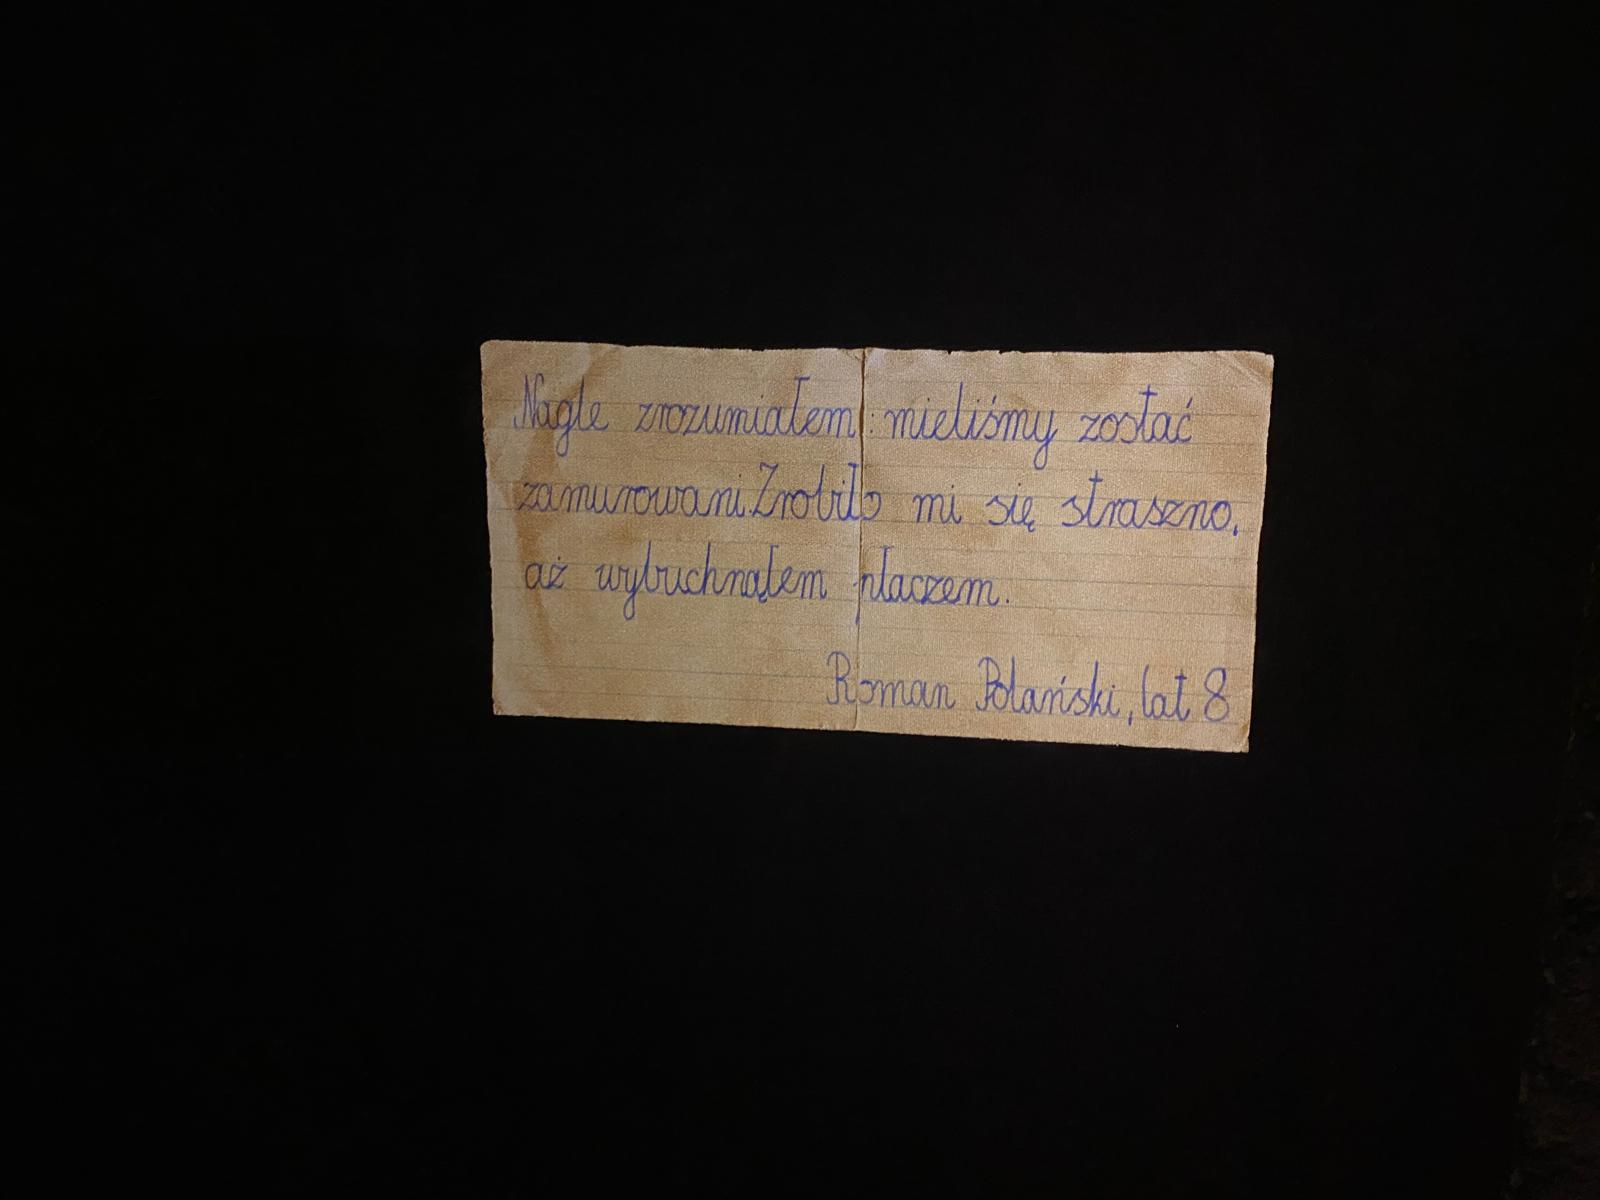 Nagle zrozumiałem: mieliśmy zostać
zamurowani. Zrobiło mi się straszno,
aż wybuchnąłem płaczem.
Roman Polański, lat 8